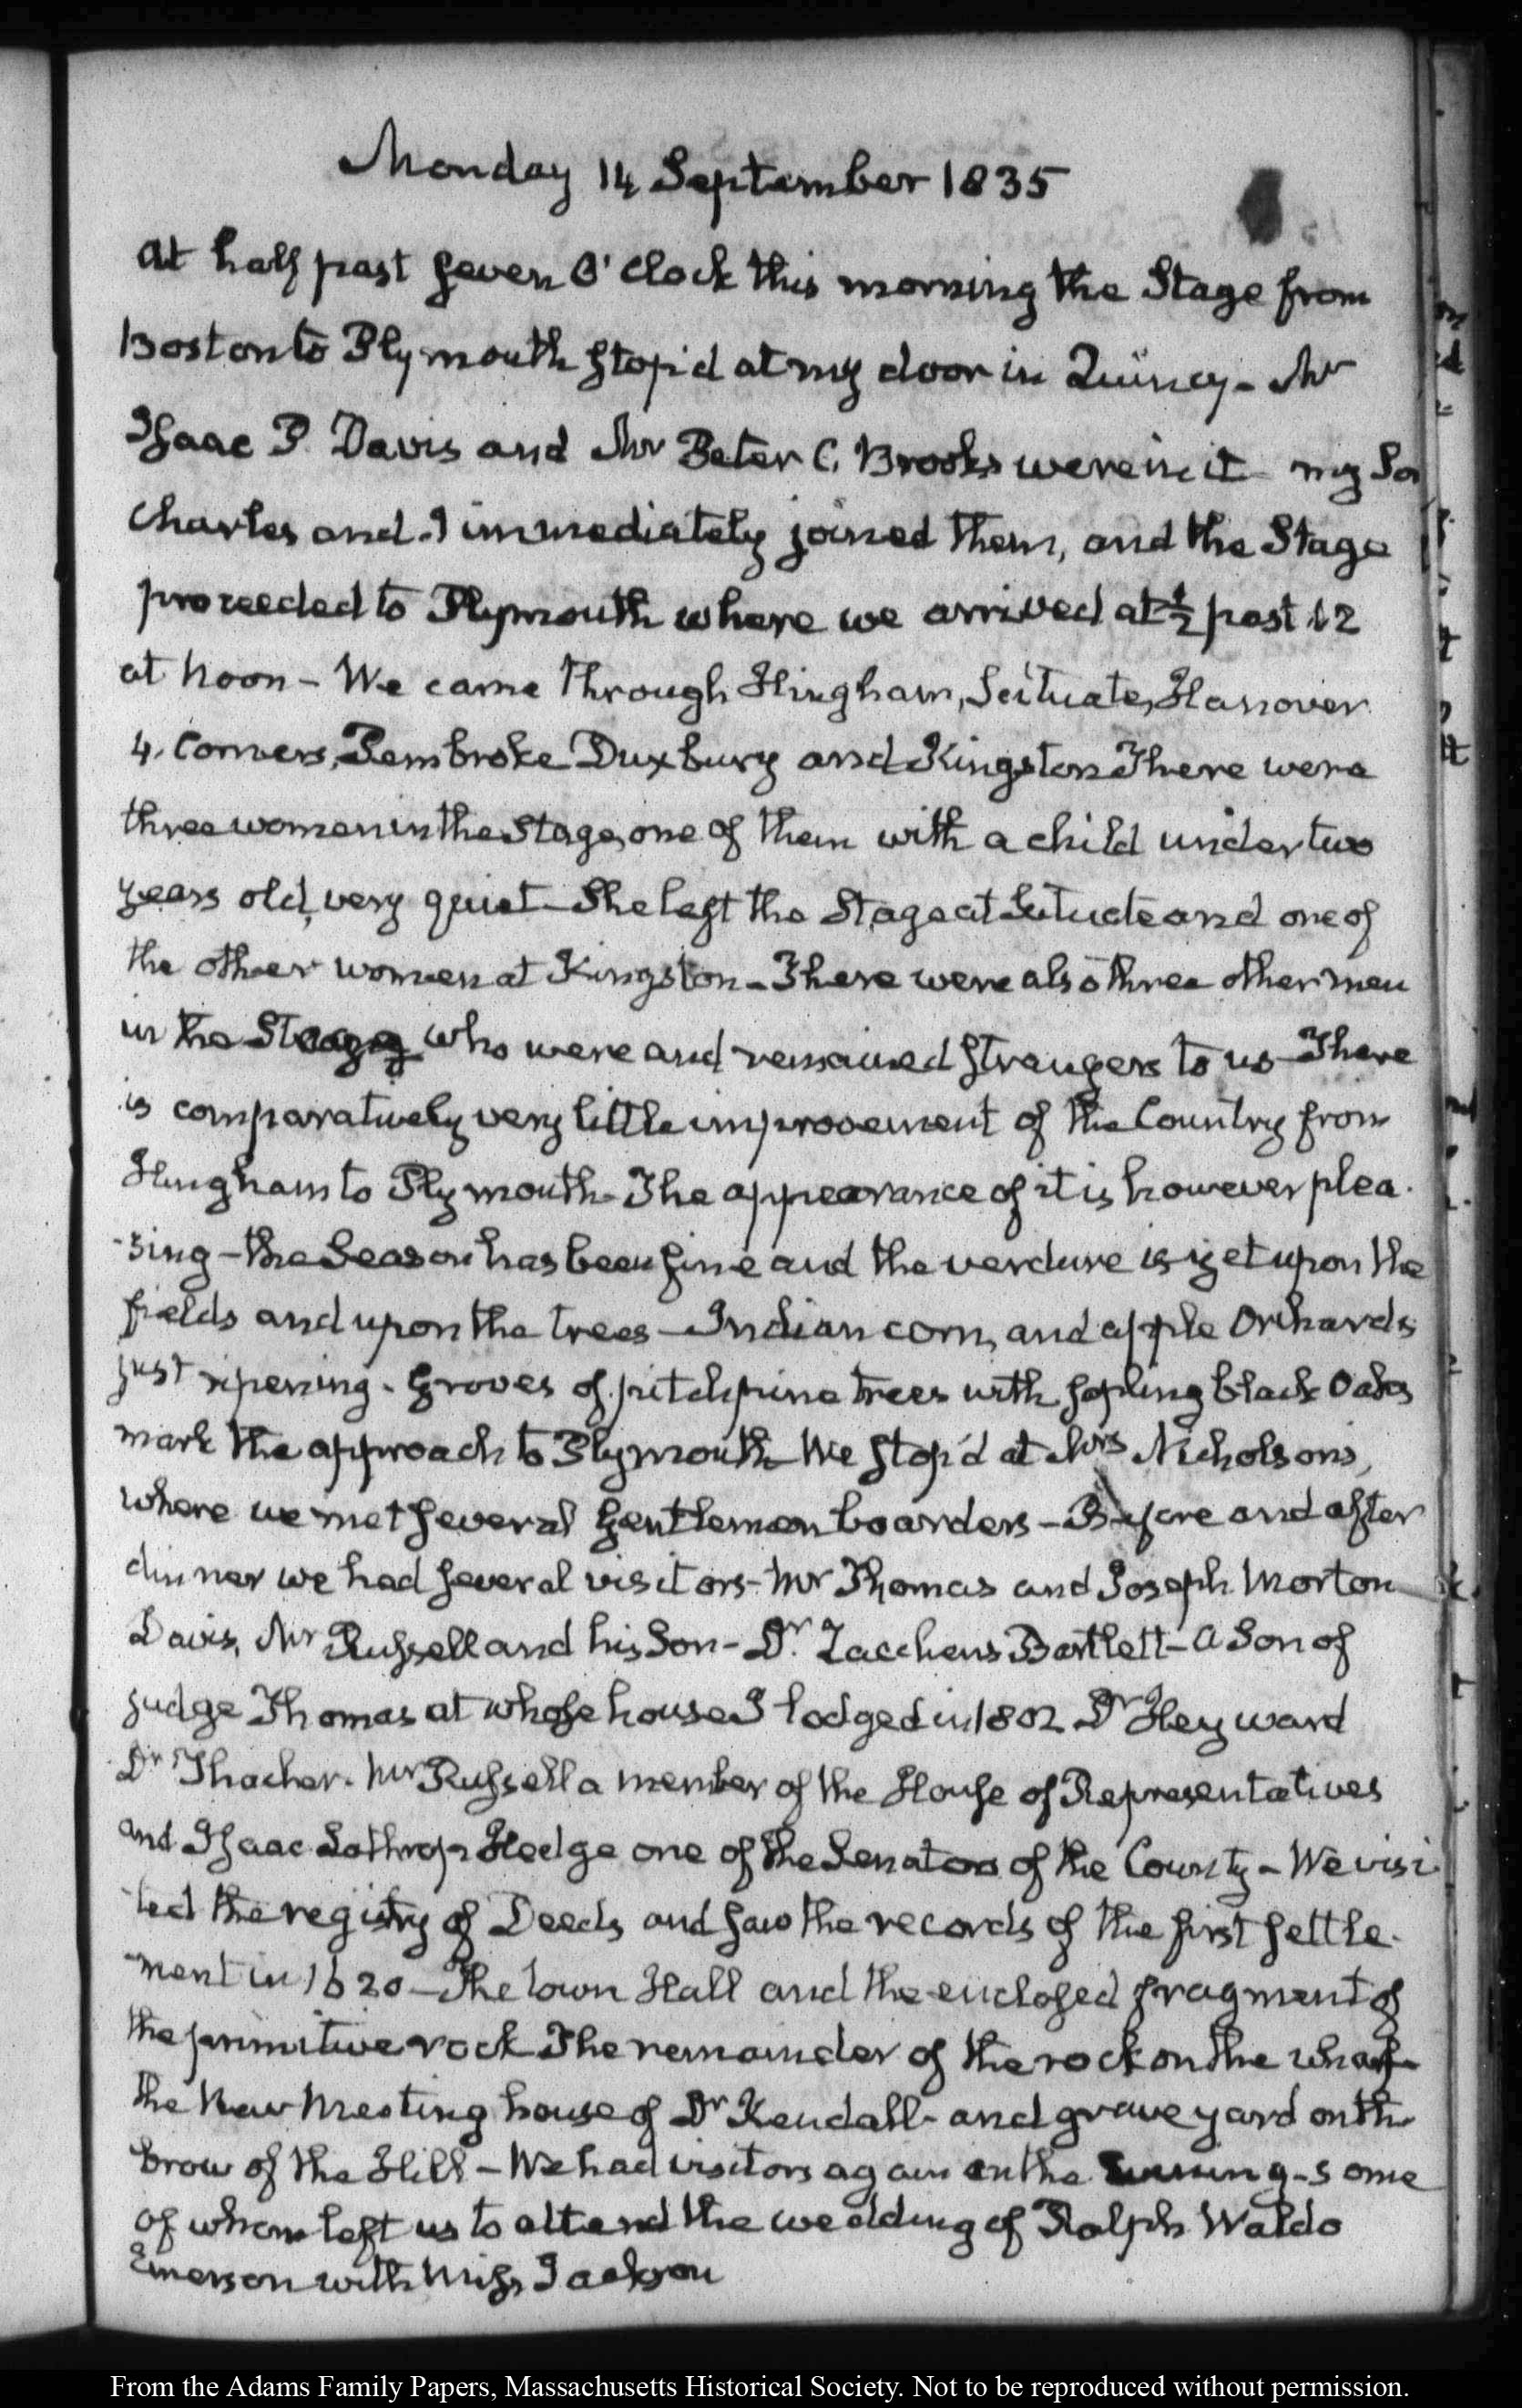 Monday 14 September 1835
At half past seven O'Clock this morning the Stage from
Boston to Plymouth stop'd at my door in Quincy - Mr
Isaac P. Davis and Mr Peter C. Brooks were in it - my So
Charles and I immediately joined them, and the Stage
proceeded to Plymouth where we arrived at ½ past 12
at noon - We came through Hingham, Scituate, Hanover
4. Corners, Pembroke Duxbury and Kingston There were
three women in the Stage, one of them with a child under two
years old, very quiet - She left the Stage at Scituate and one of
the other women at Kingston - There were also three other men
in the Stage who were and remained strangers to us - There
is comparatively very little improvement of the Country from
Hingham to Plymouth - The appearance of it is however plea-
-sing - the Season has been fine and the verdure is yet upon the
fields and upon the trees - Indian corn, and apple Orchards
just ripening - Groves of pitch pine trees with sapling black Oaks
mark the approach to Plymouth - We stop'd at Mrs Nicholson's,
where we met several Gentlemen boarders - Before and after
dinner we had several visitors - Mr Thomas and Joseph Morton
Davis, Mr Russell and his Son - Dr. Zaccheus Bartlett - a Son of
judge Thomas at whose house I lodged in 1802 Dr Heyward
Dr Thacher - Mr Russell a member of the House of Representatives
and Isaac Lothrop Hedge one of the Senators of the County - We visi-
-ted the registry of Deeds and saw the records of the first settle-
-ment in 1620 - The town Hall and the enclosed fragment of
the primitive rock The remainder of the rock on the wharf -
the New Meeting house of Dr Kendall - and grave yard on the
brow of the Hill - We had visitors again in the Evening - some
of whom left us to attend the wedding of Ralph Waldo
Emerson with Miss Jackson
From the Adams Family Papers, Massachusetts Historical Society. Not to be reproduced without permission.